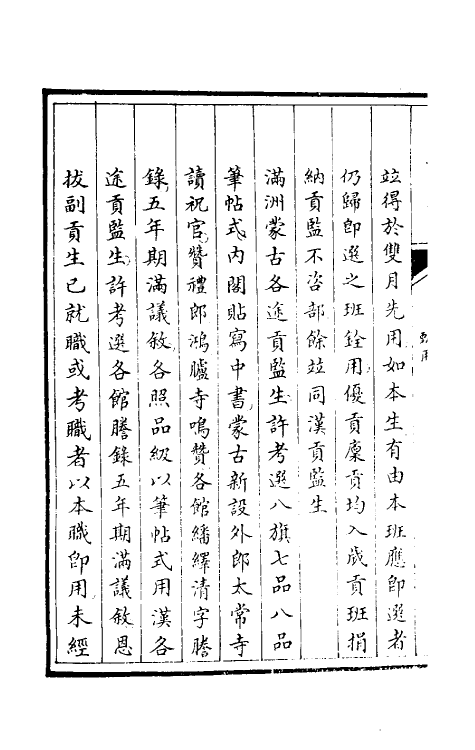 竝得於雙月先用如本生有由本班應即選者
仍歸即選之班銓用優貢廩貢均入歲貢班捐
納貢監不咨部餘竝同漢貢監生
滿洲蒙古各途貢監生許考選八旗七品八品
筆帖式内閣貼寫中書蒙古新設外郎太常寺
讀祝官贊禮郎鴻臚寺鳴贊各館繙繹清字謄
錄五年期滿議敘各照品級以筆帖式用漢各
途貢監生許考選各館謄錄五年期滿議敘恩
拔副貢生已就職或考職者以本職即用未經